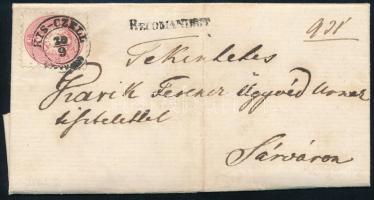 KIS-CZELL
19
9
RECOMANDIRT
Tekintetes
Ferencz Ügyvéd Urnak
tisztelettel
Sárváron